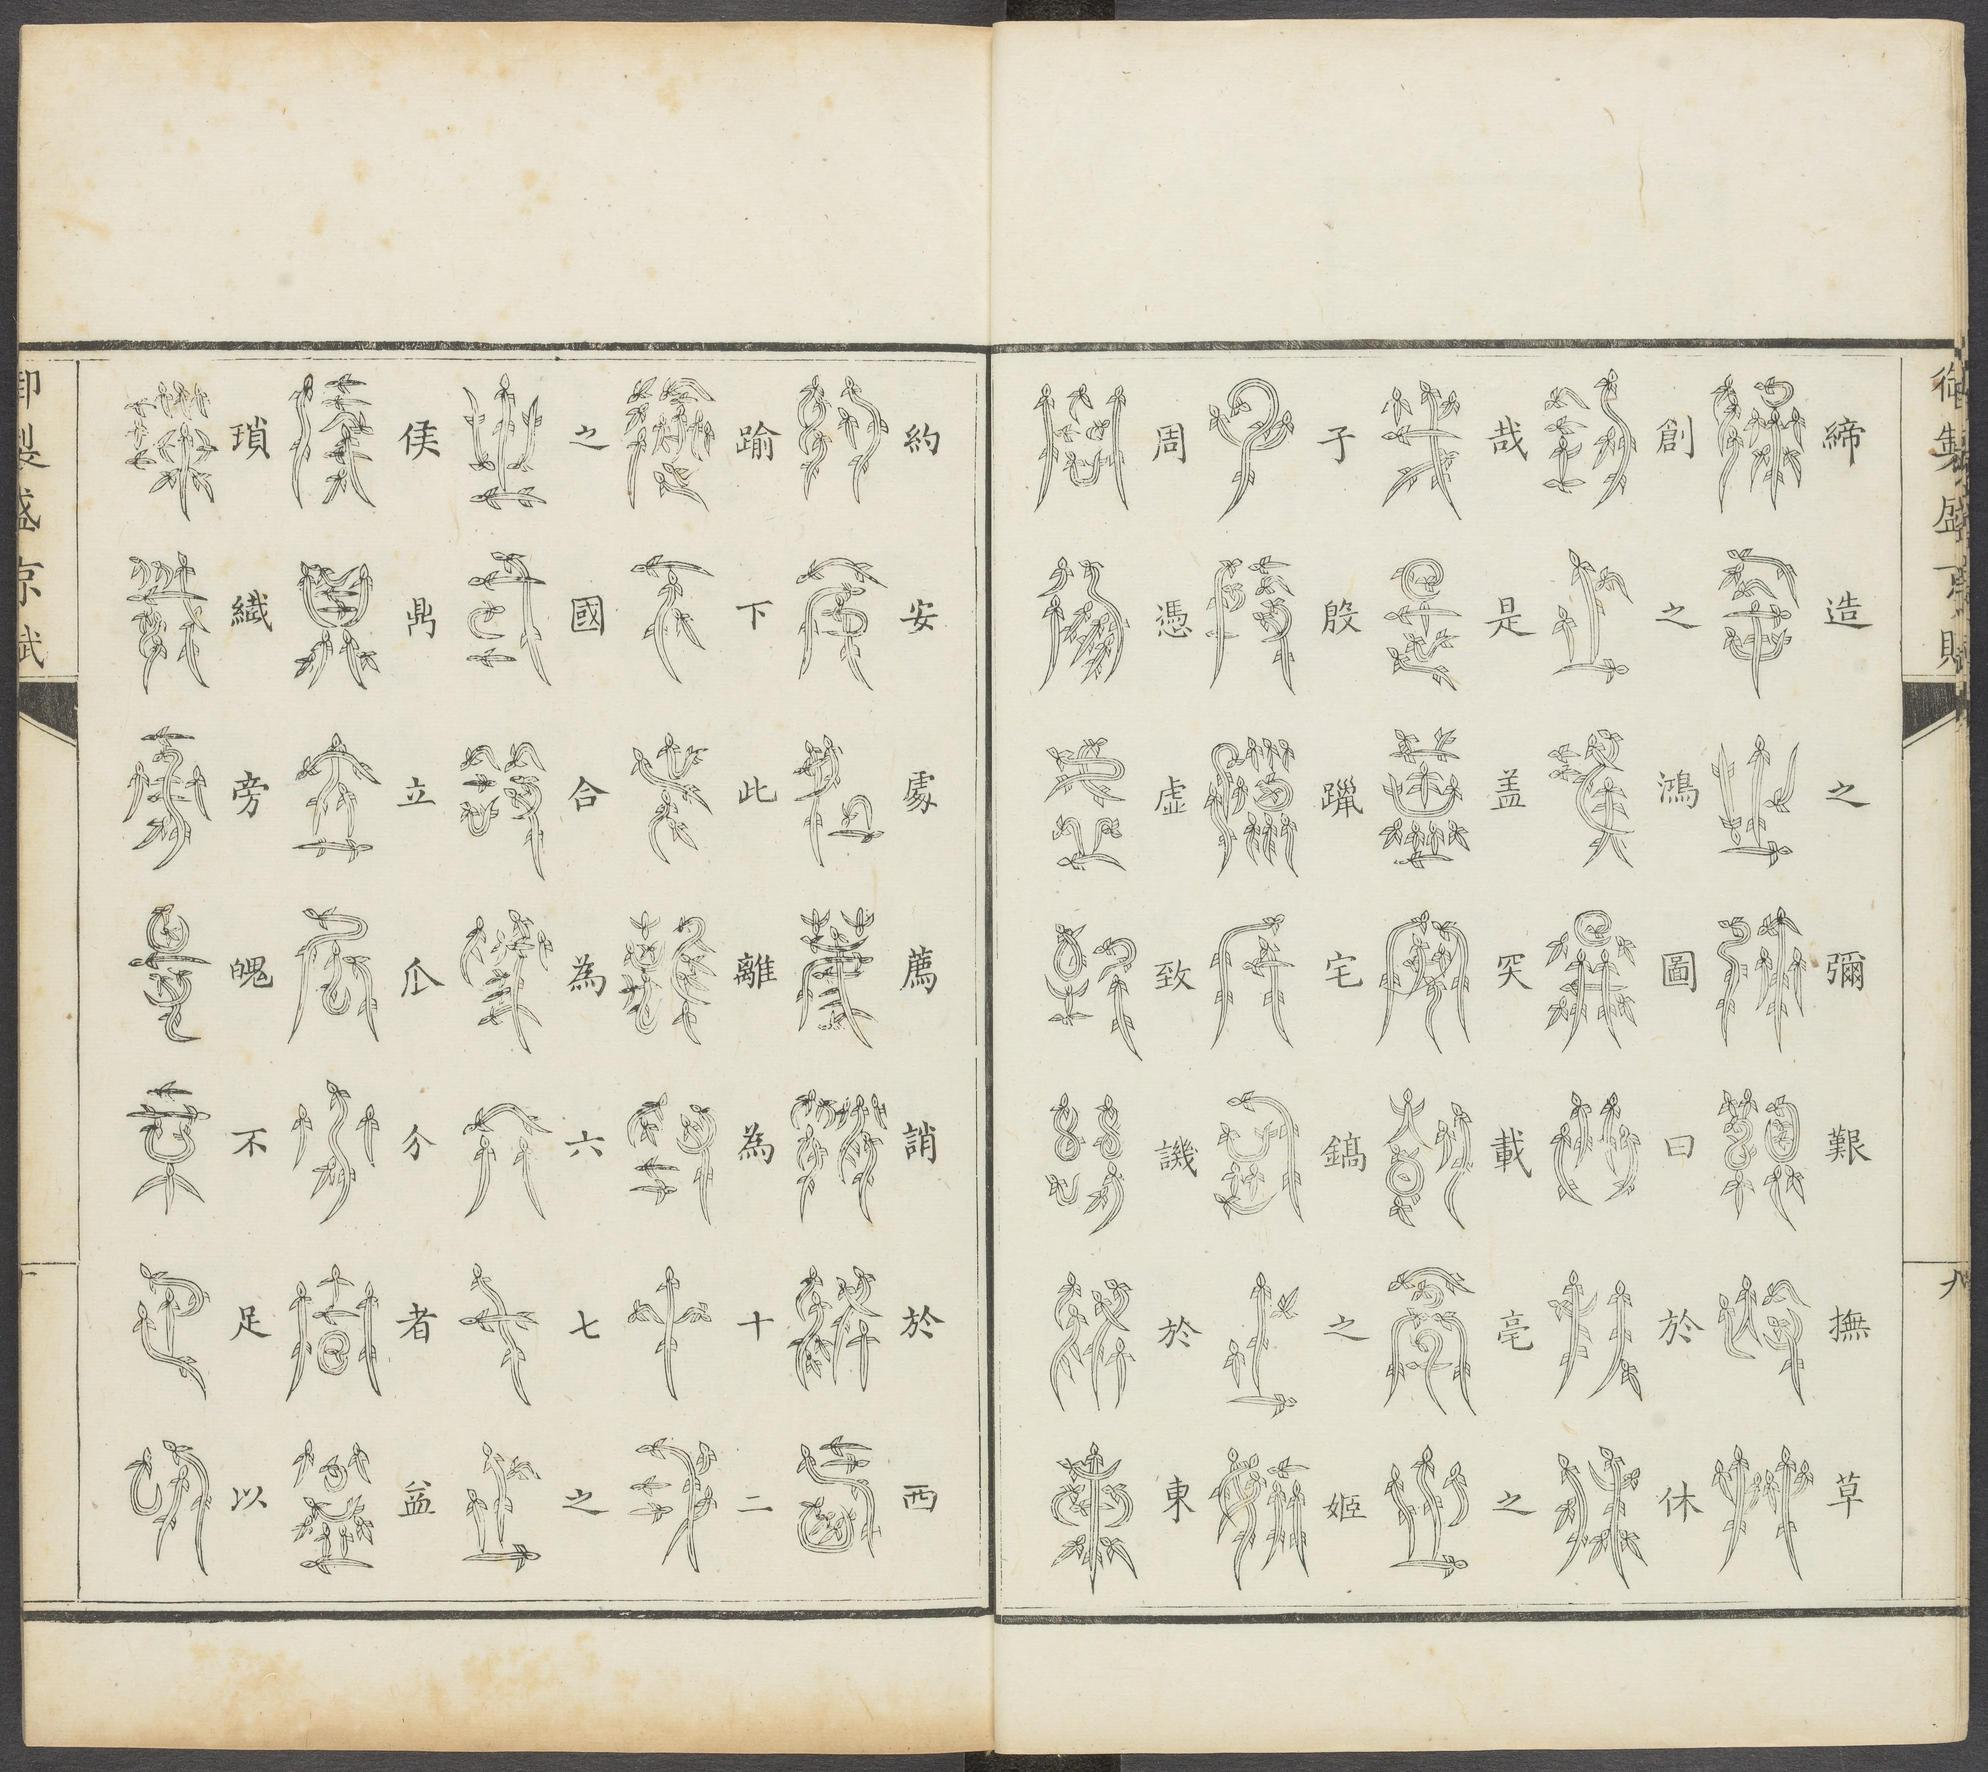 御製盛京賦
九
締造之彌艱撫草
創之鴻圖曰於休
哉是蓋突載亳之
子殷躐宅鎬之姬
周憑虛致譏於東
約安處薦誚於西
踰下此離為十二
之國合為六七之
侯鼎立瓜分者益
瑣纖旁魄不足以
御製盛京賦